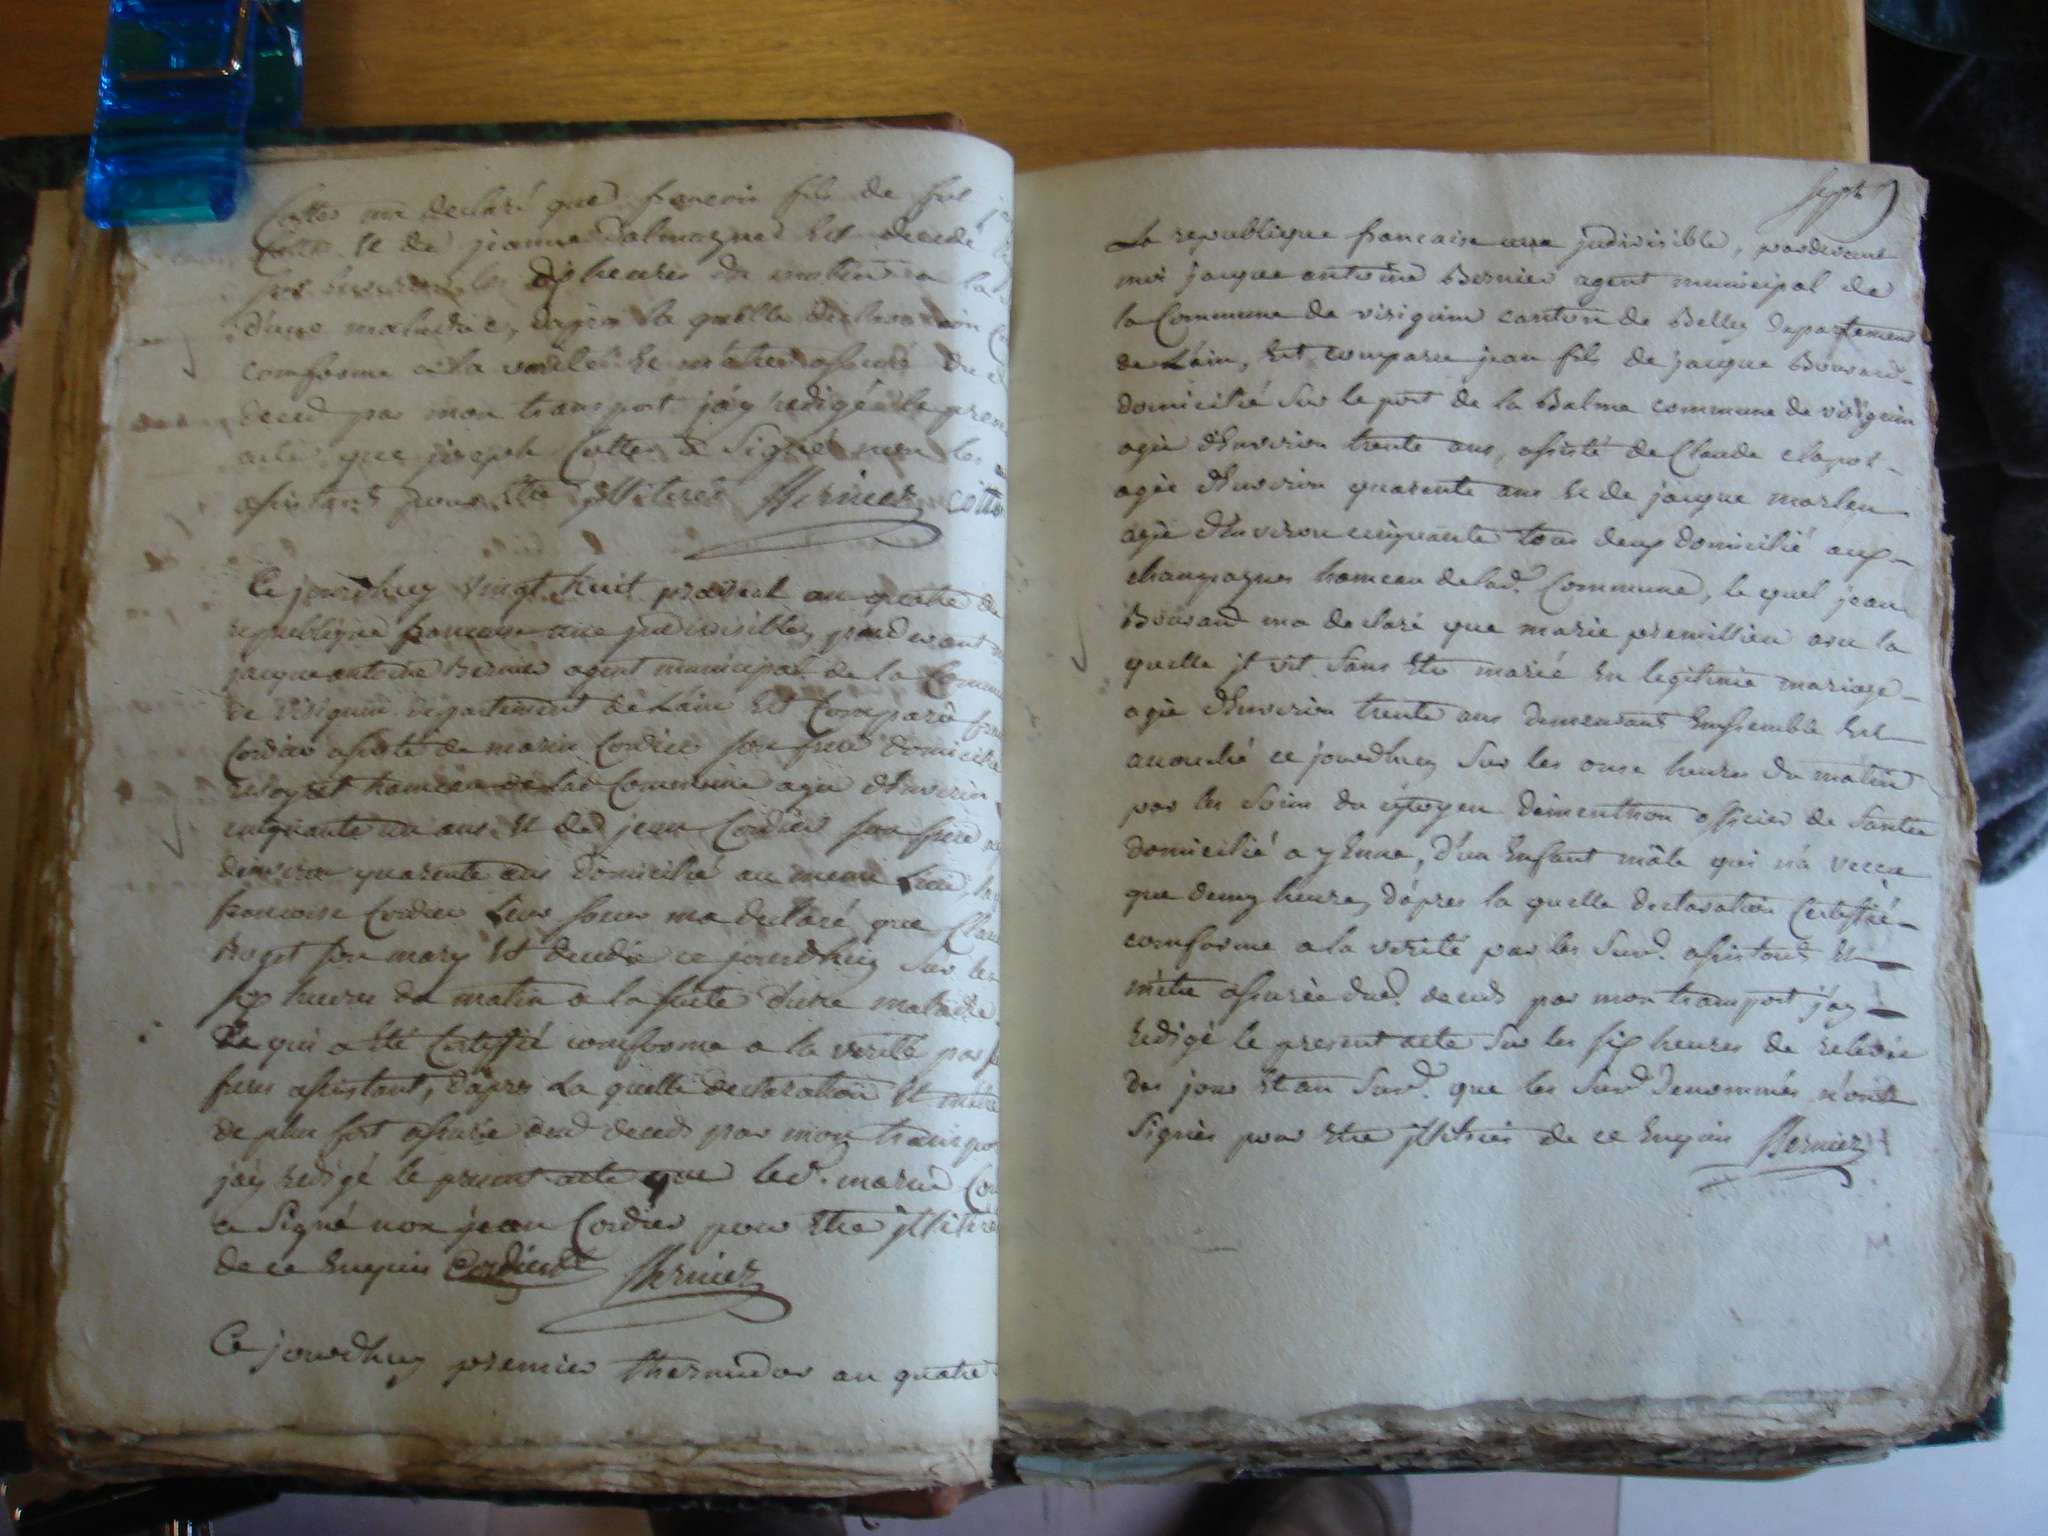 Cottes ma declaré que francois fils de feu
Cottes et de jeanne Dalmagne est decedé
les dix heures du matin a la
d'une maladie, dapres la quelle declaration
comforme a la verité et m'etre assuré du
deced par mon transport j'ay redigé le pres
acte que joseph Cottes a Signé non les
assistants pour etre illiteres Bernier cotte
Ce jourdhuy vingt huit prairial an quatre de
republique francaise une jndivisible, pardevant
jacque antoine Bernier agent municipal de la Commu
de virignin departement de Lain est Comparu fran
Cordier assisté de marin Cordier son frere domicilié
hameau de lad Commune agé d'Environ
cinquante un ans et de jean Cordier son frere ag
denviron quarente ans domicilié au meme lieu, la
francoise Cordier leur soeur ma declaré que Clau
Buget son mary est decedé ce jourdhuy sur les
six heures du matin a la suite d'une maladie
Ce qui a eté Certiffié comforme a la verité par se
freres assistant, dapres La quelle declaration et m'etre
de plus fort assurée dud deceds par mon transpor
j'ay redigé le present acte que led. marin Cor
a Signé non jean Cordier pour etre jllitere
de ce Enquis Cordier Bernier
Ce jourdhuy premier thermidor an quatre
sept
La republique francaise une jndivisible, pardevant
moi jacque antoine Bernier agent municipal de
la Commune de virignin canton de Belley departement
de Lain, est comparu jean fils de jacque Bouvard
domicilié sur le port de la Balme commune de virignin
agée d'Environ trente ans, assisté de Claude clapot
agée d'Environ quarente ans et de jacque marlen
agée d'Environ cinquante tous deux domicilié aux
champagnes hameau de lad. Commune, le quel jean
Bouvard ma declaré que marie premillieu avec la
quelle jl vit sans etre marié en legitime mariage
agée d'Environ trente ans demeurant Ensemble est
accouché ce jourdhuy Sur les onse heures du matin
par les soins du citoyen dementhon officier de Santée
domicilié a yenne, d'un Enfant mâle qui n'a veccu
que demy heure, dápres la quelle declaration Certiffié
comforme a la verité par les Susd. assistants et
m'etre assurée dud. deceds par mon transport j'ay
redigé le present acte sur les six heures de relevée
des jour et an susd. que les susd. denommés n'ont
Signés pour etre jllitérés de ce Enquis Bernier